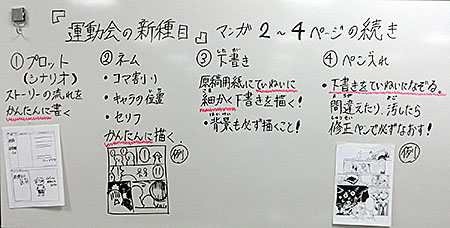 『運動会の新種目』マンガ2～4ページの続き
①プロット
(シナリオ)
ストーリーの流れを
かんたんに書く
②ネーム
・コマ割り
・キャラの位置
・セリフ
かんたんに描く
例
③下書き
原稿用紙にていねいに
細かく下書きを描く!
・背景も必ず描くこと!
④ペン入れ
・下書きをていねいになぞる。
間違えたり、汚したら
修正ペンで必ずなおす!
例